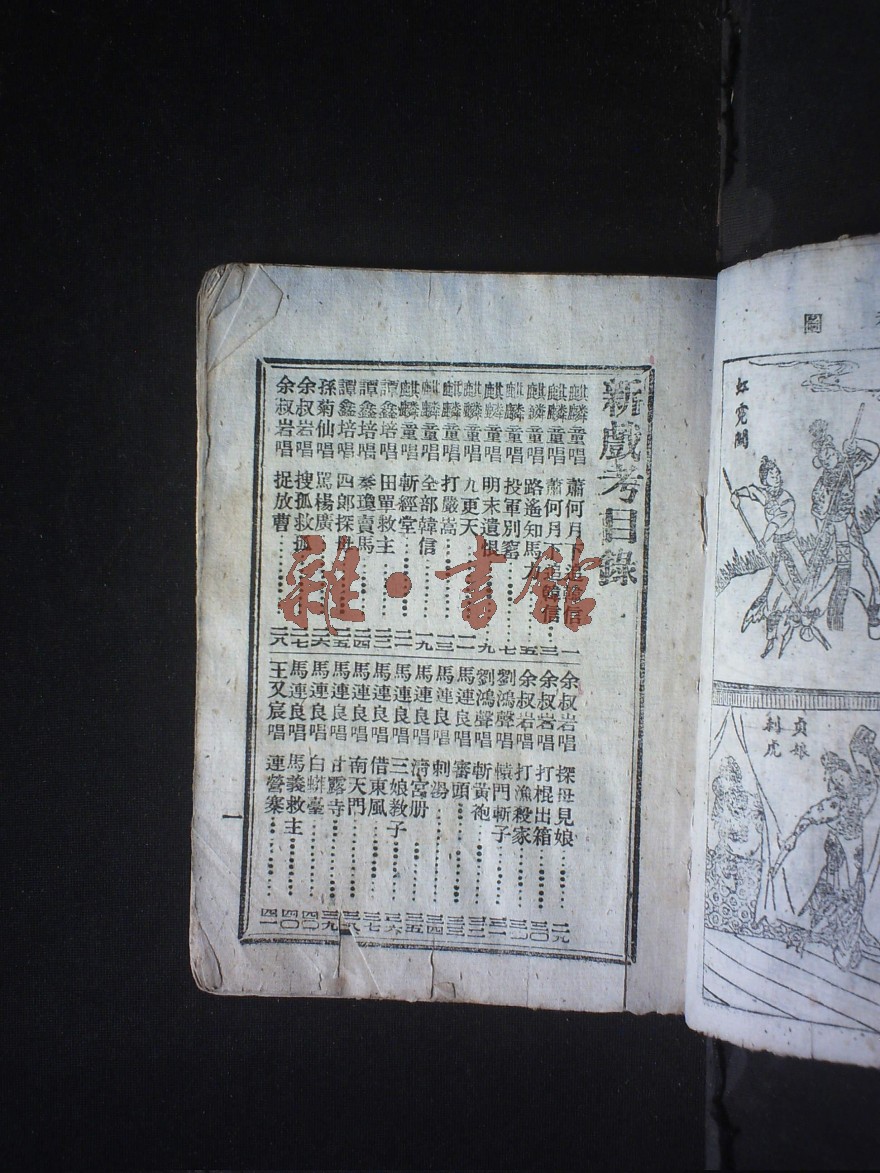 新戲考目錄
麒麟童唱 蕭何月下追韓信 一
麒麟童唱 蕭何月下追韓信 三
麒麟童唱 路遙知馬力 五
麒麟童唱 投軍別窰 七
麒麟童唱 明末遺恨 九
麒麟童唱 九更天 一一
麒麟童唱 打嚴嵩 一三
麒麟童唱 全部韓信 一九
麒麟童唱 斬經堂 二一
譚鑫培唱 田單救主 二三
譚鑫培唱 秦瓊賣馬 二四
譚鑫培唱 四郎探母 二五
孫菊仙唱 罵楊廣 二六
余叔岩唱 搜孤救孤 二七
余叔岩唱 捉放曹 二八
余叔岩唱 探母見娘 二九
余叔岩唱 打棍出箱 三〇
余叔岩唱 打漁殺家
劉鴻聲唱 轅門斬子
劉鴻聲唱 斬黃袍
馬連良唱 審頭
馬連良唱 刺湯 三四
馬連良唱 清宮册 三五
馬連良唱 三娘教子 三六
馬連良唱 借東風 三七
馬連良唱 南天門 三八
馬連良唱 甘露寺 三九
馬連良唱 白蟒臺 四〇
馬連良唱 馬義救主 四〇
王又宸唱 連營寨 四一
一
雜·書館
圖
虹霓關
貞娘
刺虎